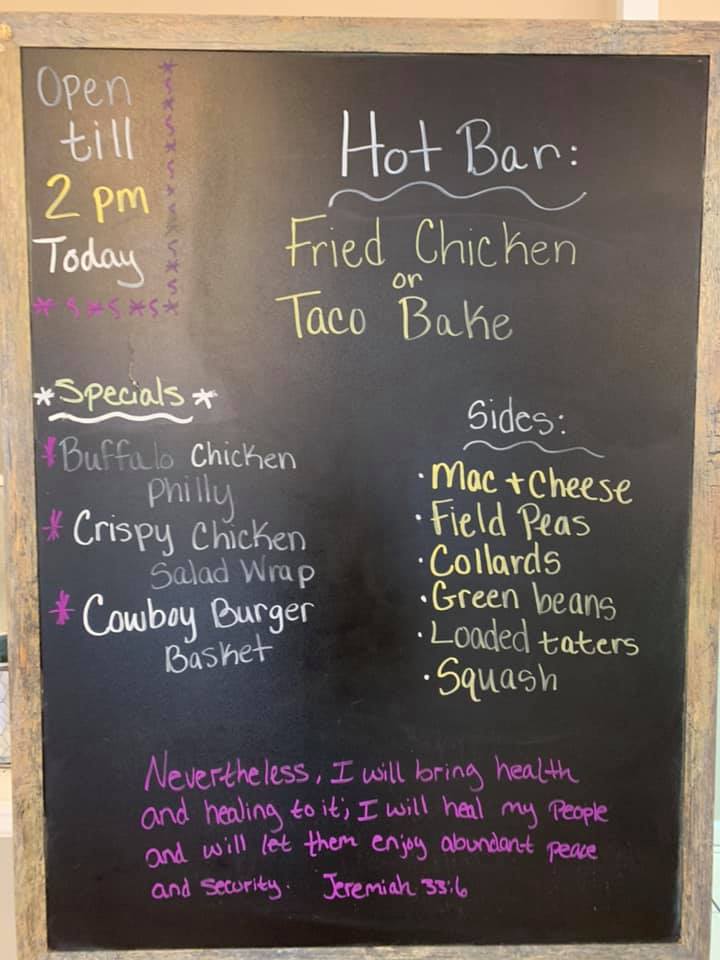 Open
till
2 pm
Today
Hot Bar:
Fried Chicken
or
Taco Bake
*Specials*
*Buffalo Chicken
Philly
*Crispy Chicken
Salad Wrap
*Cowboy Burger
Basket
Sides:
·Mac + Cheese
·Field Peas
·Collards
·Green beans
·Loaded taters
·Squash
Nevertheless, I will bring health
and healing to it; I will heal my People
and will let them enjoy abundant peace
and security. Jeremiah 33:6